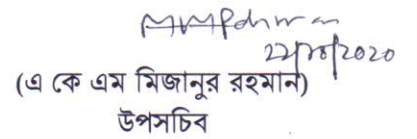 22/10/2020
(এ কে এম মিজানুর রহমান)
উপসচিব